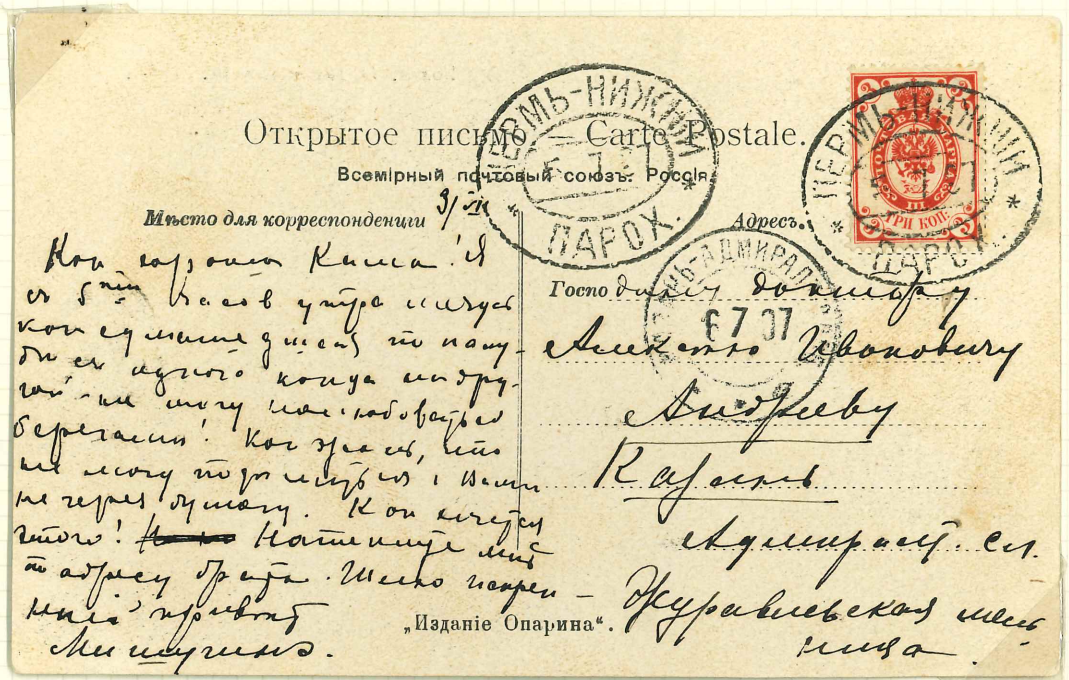 Открытое письмо — Carte Postale.
Всемірный почтовый союзъ. Россія.
ПЕРМЬ-НИЖНИЙ
5 7 07
ПАРОХ.
ПЕРМЬ-НИЖНИЙ
7 07
ПАРОХ.
ТРИ КОП.
Мѣсто для корреспонденціи
3/VII
Адресъ.
Как хороша Кама! Я
съ 5ти часов утра мечусь
как сумасшедшая по палу-
бе съ одного конца на дру-
гой - не могу налюбоваться
берегами! Как жаль, что
не могу поделиться с Вами
не через бумагу. Как хочется
этого! Напишите мнѣ
по адресу брата. Шлю искрен-
ній привет
КАЗАНЬ-АДМИРАЛ
6 7 07
Господину доктору
Алексѣю Ивановичу
Андрееву
Казань
Адмиралт. сл.
Журавлевская мель
ница.
„Изданіе Опарина“.